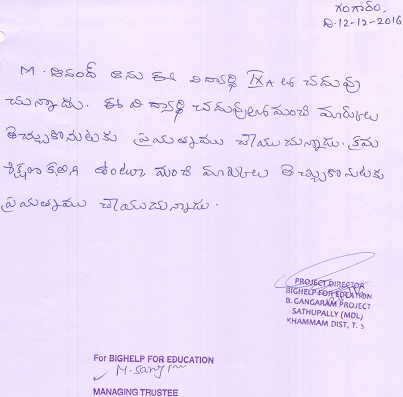 గంగారం.
ది-12-12-2016
M. ఆనంద్ అను ఈ విద్యార్థి IX A లో చదువు
చున్నాడు. ఈ విద్యార్థి చదువులో మంచి మార్కులు
తెచ్చుకొనుటకు ప్రయత్నము చేయుచున్నాడు. క్రమ
శిక్షణ కలిగి ఉంటూ మంచి మార్కులు తెచ్చుకొనుటకు
ప్రయత్నము చేయుచున్నాడు.
PROJECT DIRECTOR
BIGHELP FOR EDUCATION
B. GANGARAM PROJECT
SATHUPALLY (MDL)
KHAMMAM DIST, T. S
For BIGHELP FOR EDUCATION
MANAGING TRUSTEE